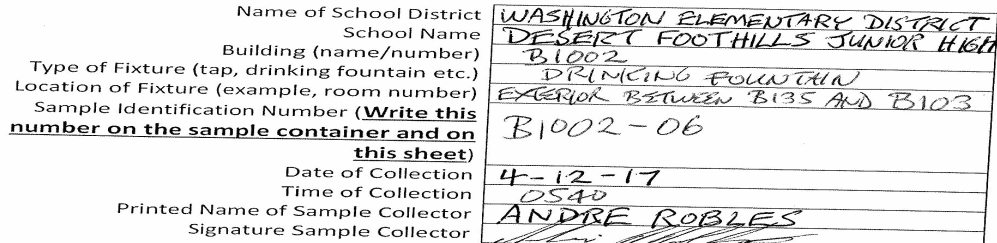 Name of School District WASHINGTON ELEMENTARY DISTRICT
School Name DESERT FOOTHILLS JUNIOR HIGH
Building (name/number) B1002
Type of Fixture (tap, drinking fountain etc.) DRINKING FOUNTAIN
Location of Fixture (example, room number) EXTERIOR BETWEEN B135 AND B103
Sample Identification Number (Write this
number on the sample container and on B1002-06
this sheet)
Date of Collection 4-12-17
Time of Collection 0540
Printed Name of Sample Collector ANDRE ROBLES
Signature Sample Collector